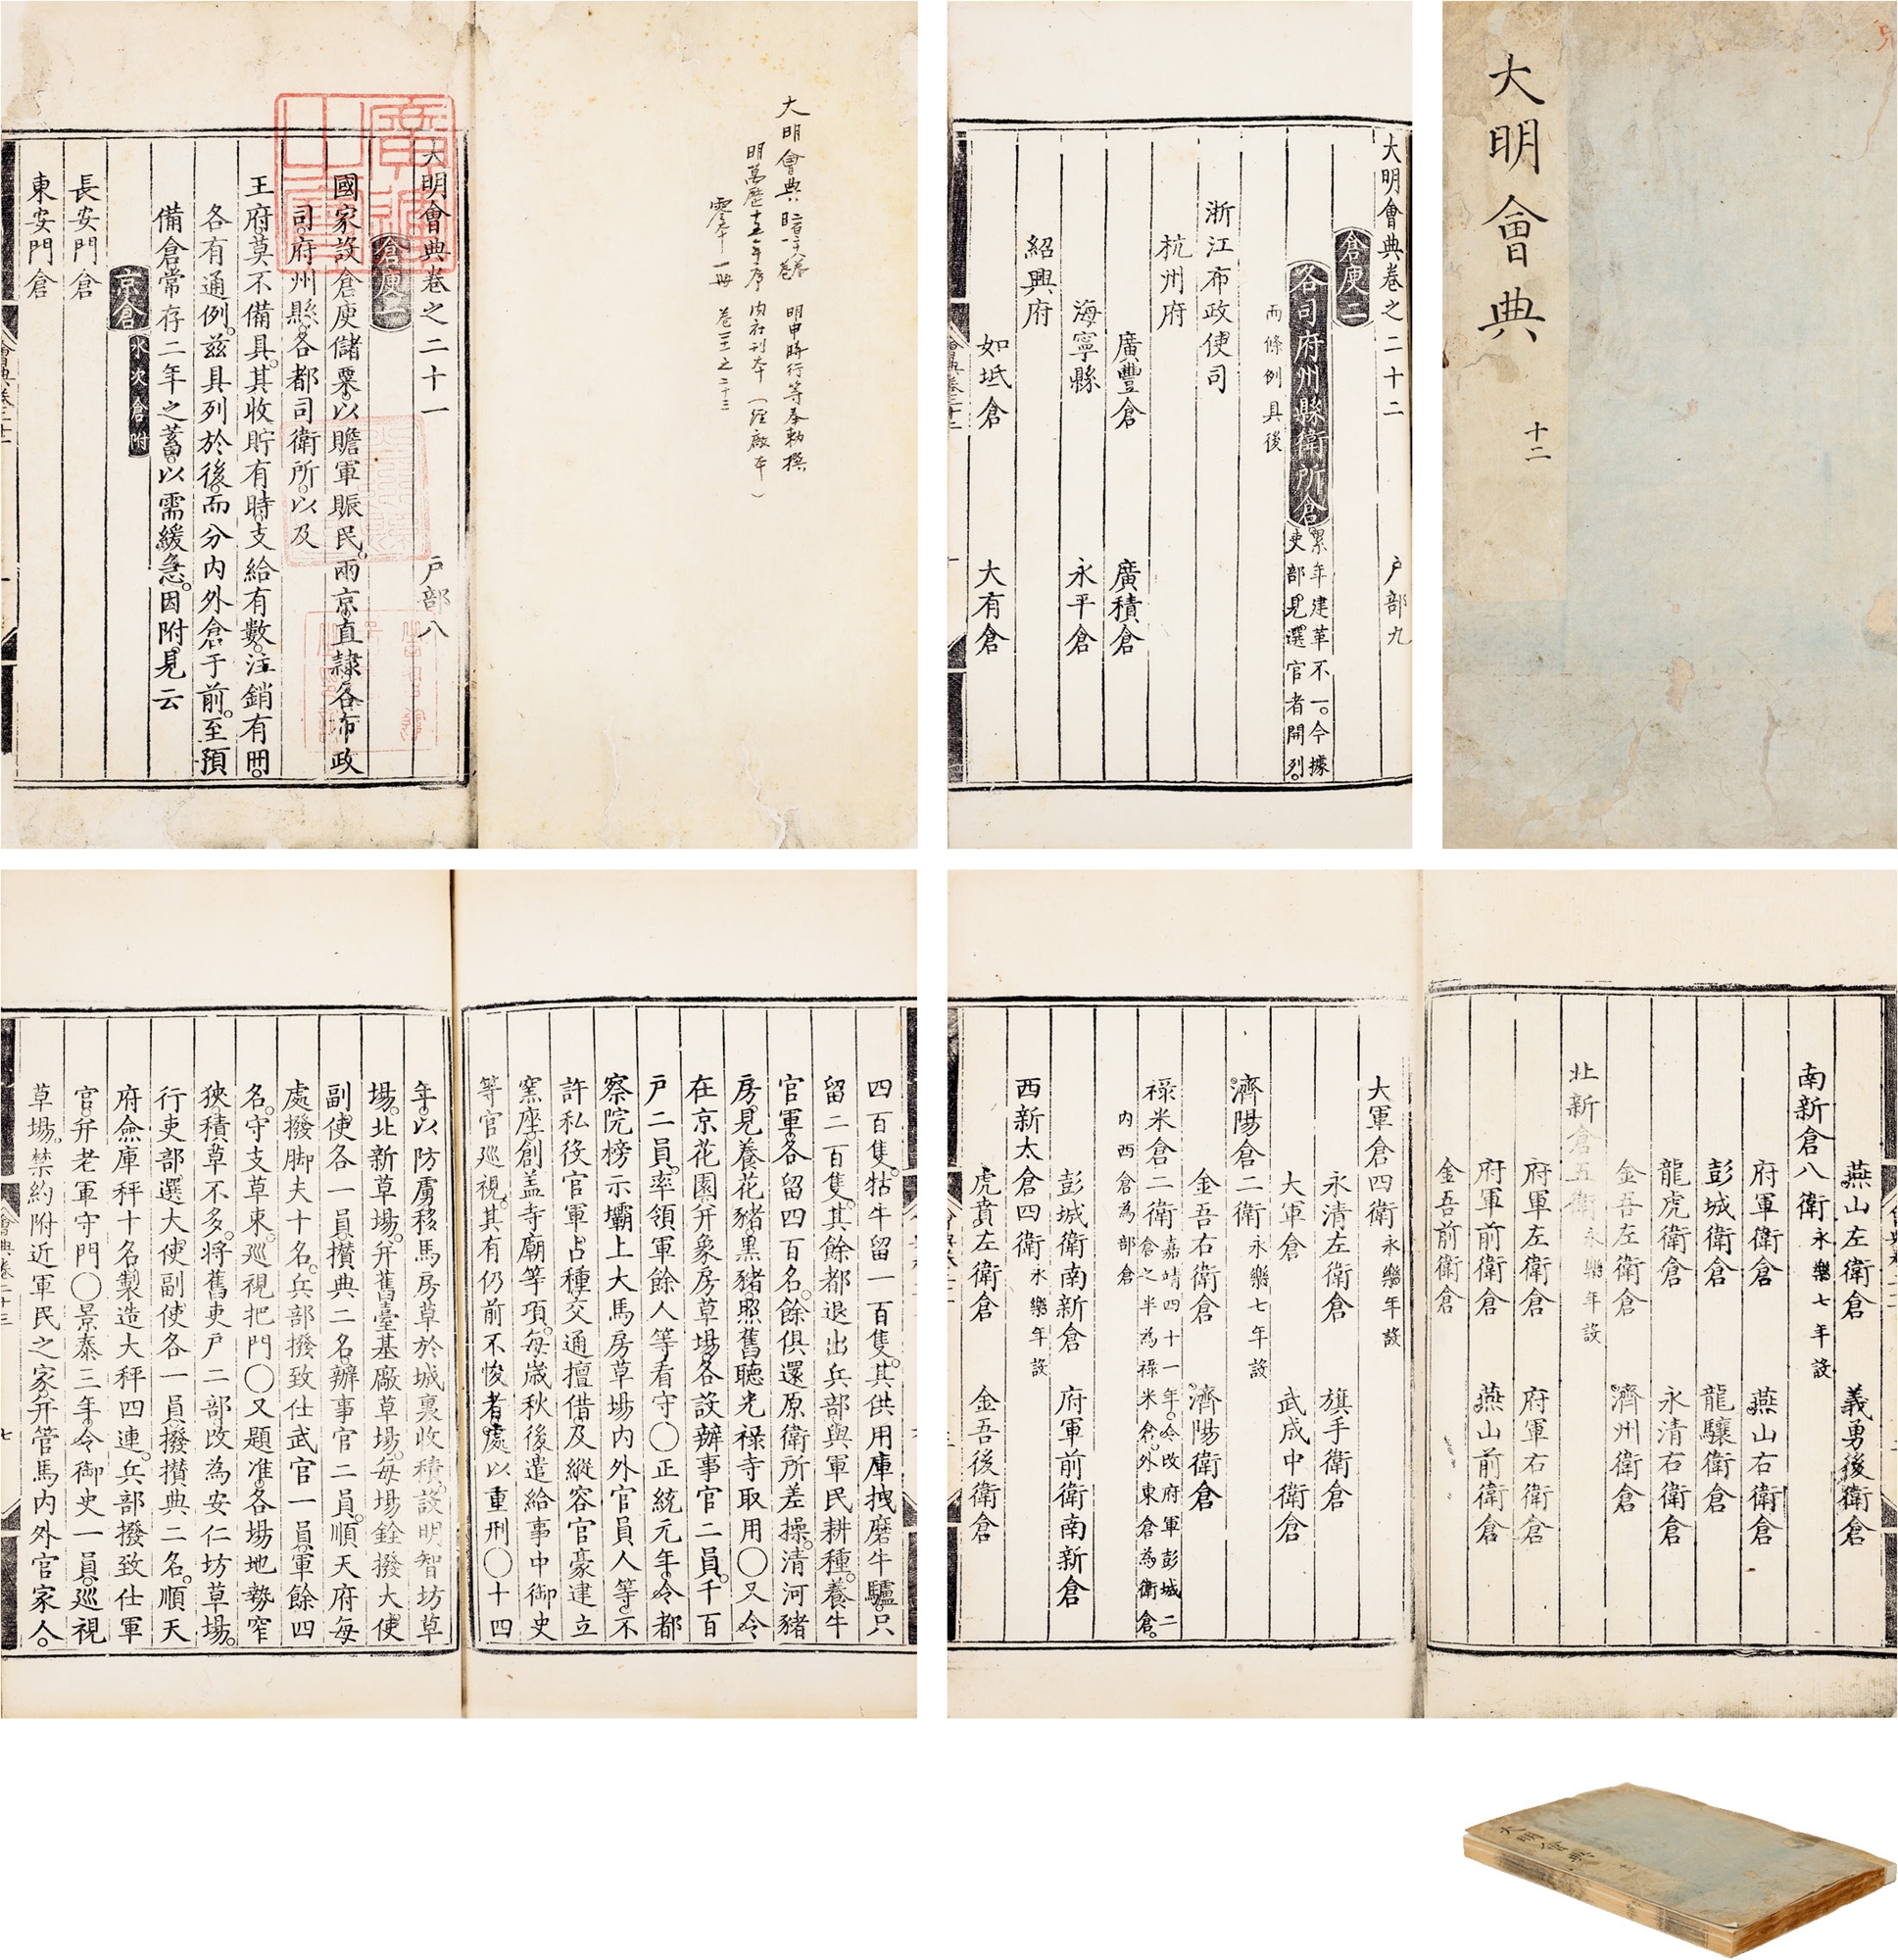 大明會典
十二
大明會典
明萬歷十五年序
零本一冊
明申時行等奉勅撰
內府刊本（經廠本）
大明會典卷之二十一
戶部八
倉庾一
國家設倉庾儲粟以贍軍賑民。兩京直隸各布政
司府州縣各都司衛所以及
王府莫不備具其收貯有時支給有數注銷有冊。
各有通例。茲具列於後而分內外倉于前。至預
備倉常存二年之蓄以需緩急。因附見云
京倉
水次倉附
長安門倉
東安門倉
大明會典卷之二十二
戶部九
倉庾二
各司府州縣衛所倉
累年建革不一。今據
吏部見選官者開列。
兩條例具後
浙江布政使司
杭州府
廣豐倉
廣積倉
海寧縣
永平倉
紹興府
如坻倉
大有倉
四百隻牯牛留一百隻其供用庫拽磨牛驢只
留二百隻其餘都退出兵部與軍民耕種。養牛
官軍各留四百名餘俱還原衛所差操。清河豬
房見養花豬黑豬照舊聽光祿寺取用〇又令
在京花園并象房草場各設辦事官二員。千百
戶二員率領軍餘人等看守〇正統元年令都
察院榜示壩上大馬房草場內外官員人等不
許私役官軍占種交通擅借及縱容官豪建立
窯座創盖寺廟等項每歲秋後遣給事中御史
等官巡視其有仍前不悛者處以重刑〇十四
年以防虜移馬房草於城裏收積設明智坊草
場北新草場并舊臺基廠草場每場銓撥大使
副使各一員攢典二名辦事官二員。順天府每
處撥脚夫十名。兵部撥致仕武官一員軍餘四
名。守支草束巡視把門〇又題准各場地勢窄
狹積草不多。將舊吏戶二部改為安仁坊草場。
行吏部選大使副使各一員撥攢典二名。順天
府僉庫秤十名製造大秤四連。兵部撥致仕軍
官并老軍守門〇景泰三年令御史一員巡視
草場禁約附近軍民之家并管馬內外官家人。
燕山左衛倉
義勇後衛倉
南新倉八衛永樂七年設
府軍衛倉
燕山右衛倉
彭城衛倉
龍驤衛倉
龍虎衛倉
永清右衛倉
金吾左衛倉
濟州衛倉
北新倉五衛永樂年設
府軍左衛倉
府軍右衛倉
府軍前衛倉
燕山前衛倉
金吾前衛倉
大軍倉四衛永樂年設
永清左衛倉
旗手衛倉
大軍倉
武成中衛倉
濟陽倉二衛永樂七年設
金吾右衛倉
濟陽衛倉
祿米倉二衛嘉靖四十一年令改府軍彭城二
倉之半為祿米倉外東倉為衛倉。
內西倉為部倉
彭城衛南新倉
府軍前衛南新倉
西新太倉四衛永樂年設
虎賁左衛倉
金吾後衛倉
大明會典